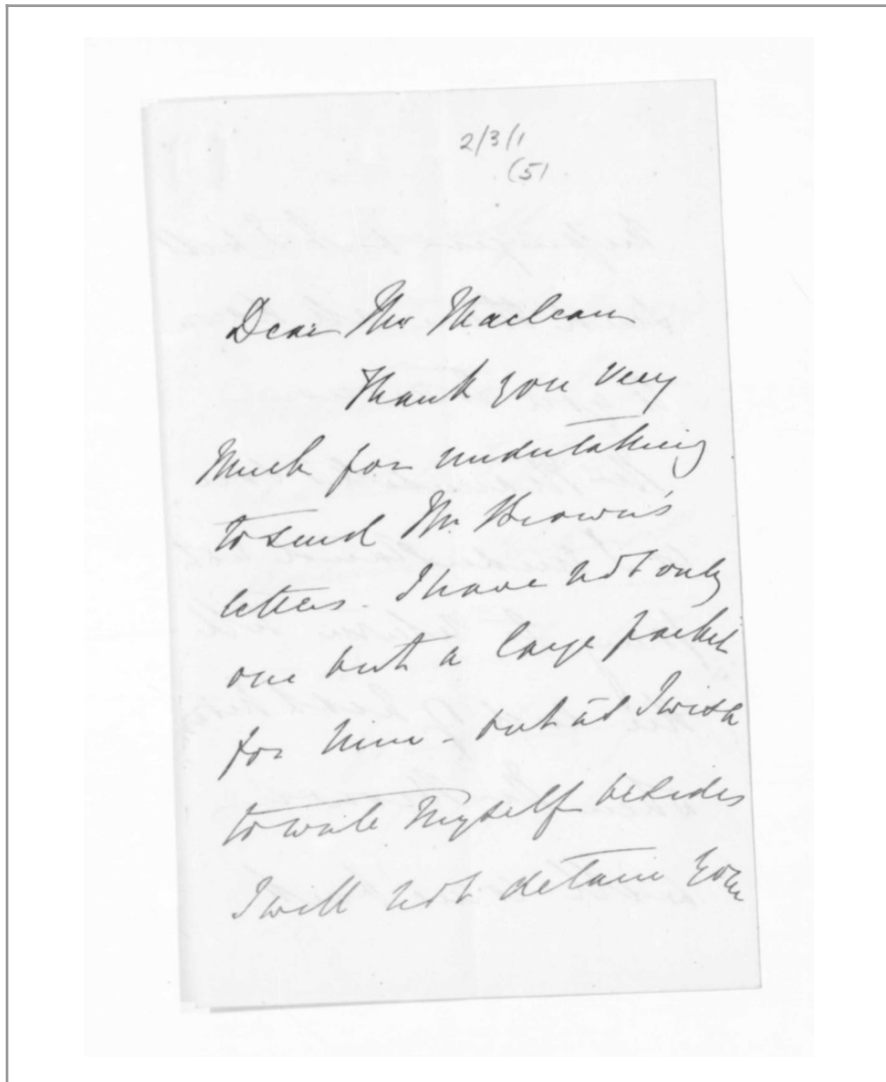 2/3/1
(5)
Dear Mr Maclean
Thank you very
much for undertaking
to send Mr. Brown's
letters. I have not only
one but a large packet
for him - but as I wish
to write myself besides
I will not detain your